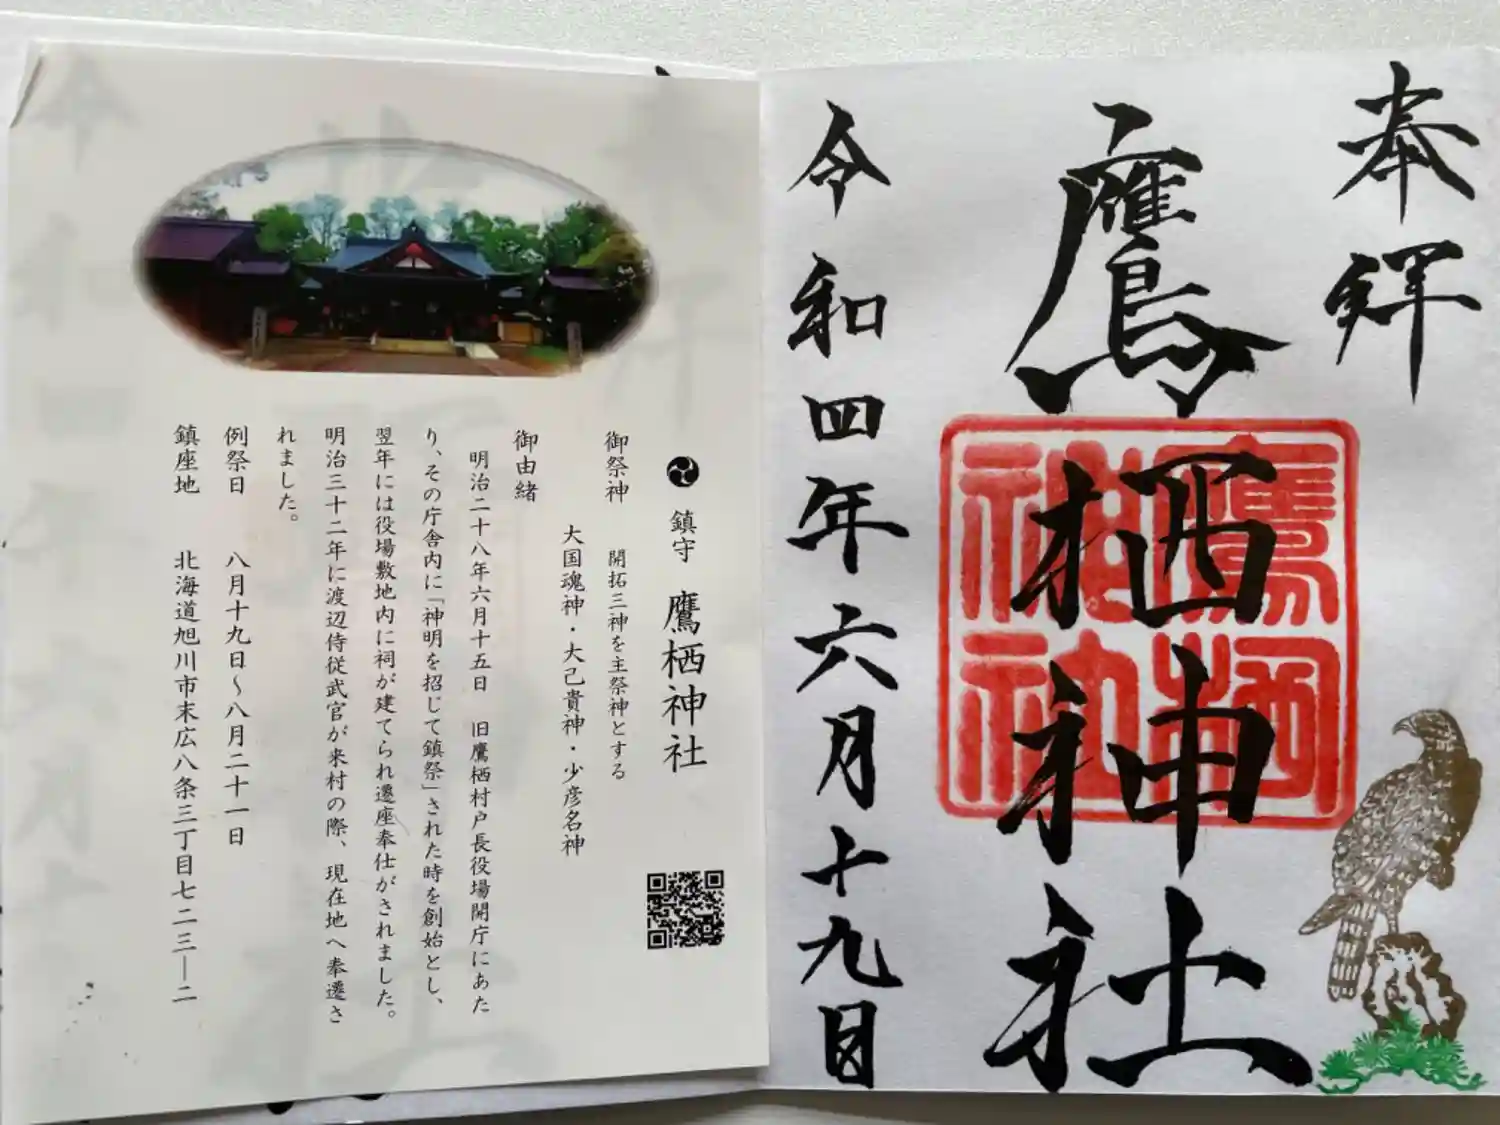 奉拝
鷹栖神社
鷹栖
神社
令和四年六月十九日
鎮守 鷹栖神社
御祭神 開拓三神を主祭神とする
大国魂神・大己貴神・少彦名神
御由緒
明治二十八年六月十五日 旧鷹栖村戸長役場開庁にあた
り、その庁舎内に「神明を招じて鎮祭」された時を創始とし、
翌年には役場敷地内に祠が建てられ遷座奉仕がされました。
明治三十二年に渡辺侍従武官が来村の際、現在地へ奉遷さ
れました。
例祭日 八月十九日〜八月二十一日
鎮座地 北海道旭川市末広八条三丁目七二三―二